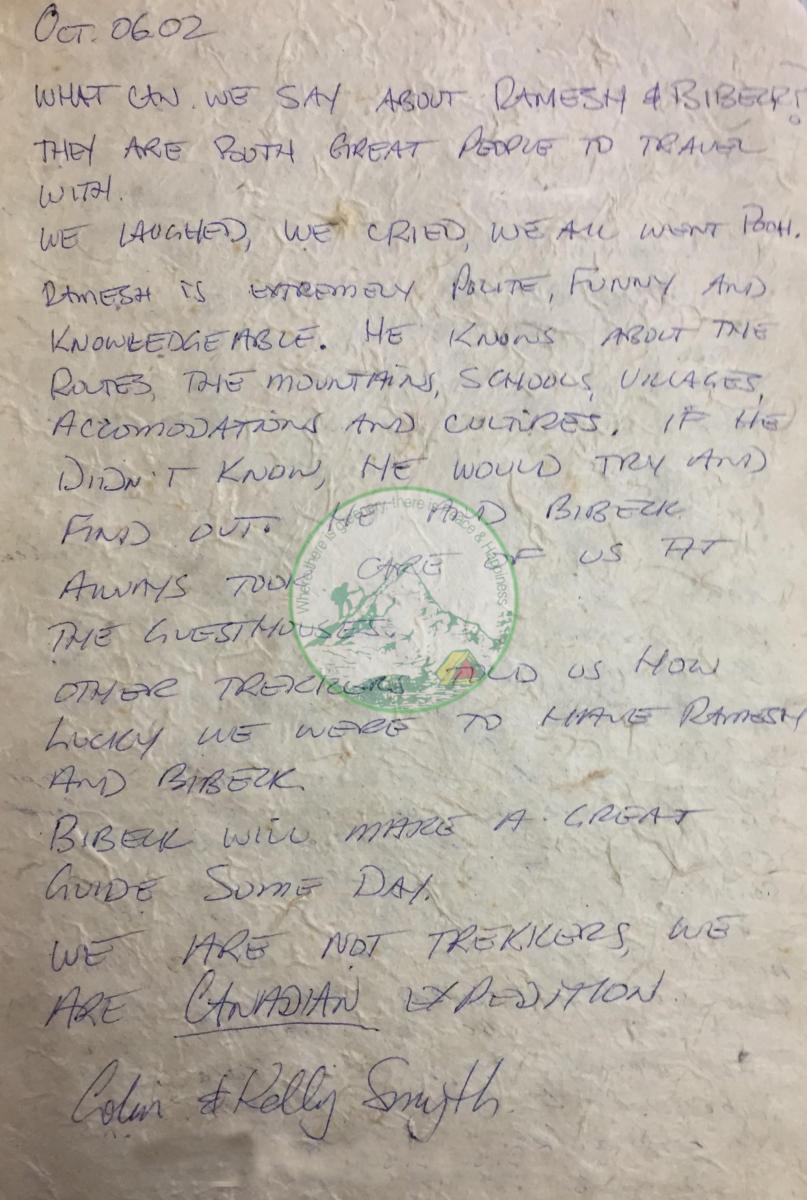 OCT. 06.02
WHAT CAN WE SAY ABOUT RAMESH & BIBECK?
THEY ARE BOTH GREAT PEOPLE TO TRAVEL
WITH.
WE LAUGHED, WE CRIED, WE ALL WENT POOH.
RAMESH IS EXTREMELY POLITE, FUNNY AND
KNOWLEDGEABLE. HE KNOWS ABOUT THE
ROUTES, THE MOUNTAINS, SCHOOLS, VILLAGES,
ACCOMODATIONS AND CULTURES. IF HE
DIDN'T KNOW, HE WOULD TRY AND
FIND OUT. HE AND BIBECK
ALWAYS TOOK CARE OF US AT
THE GUESTHOUSES.
OTHER TREKKERS TOLD US HOW
LUCKY WE WERE TO HAVE RAMESH
AND BIBECK.
BIBECK WILL MAKE A GREAT
GUIDE SOME DAY.
WE ARE NOT TREKKERS, WE
ARE CANADIAN EXPEDITION.
Colin & Kelly Smyth
Where there is greenery there is Peace & Happiness